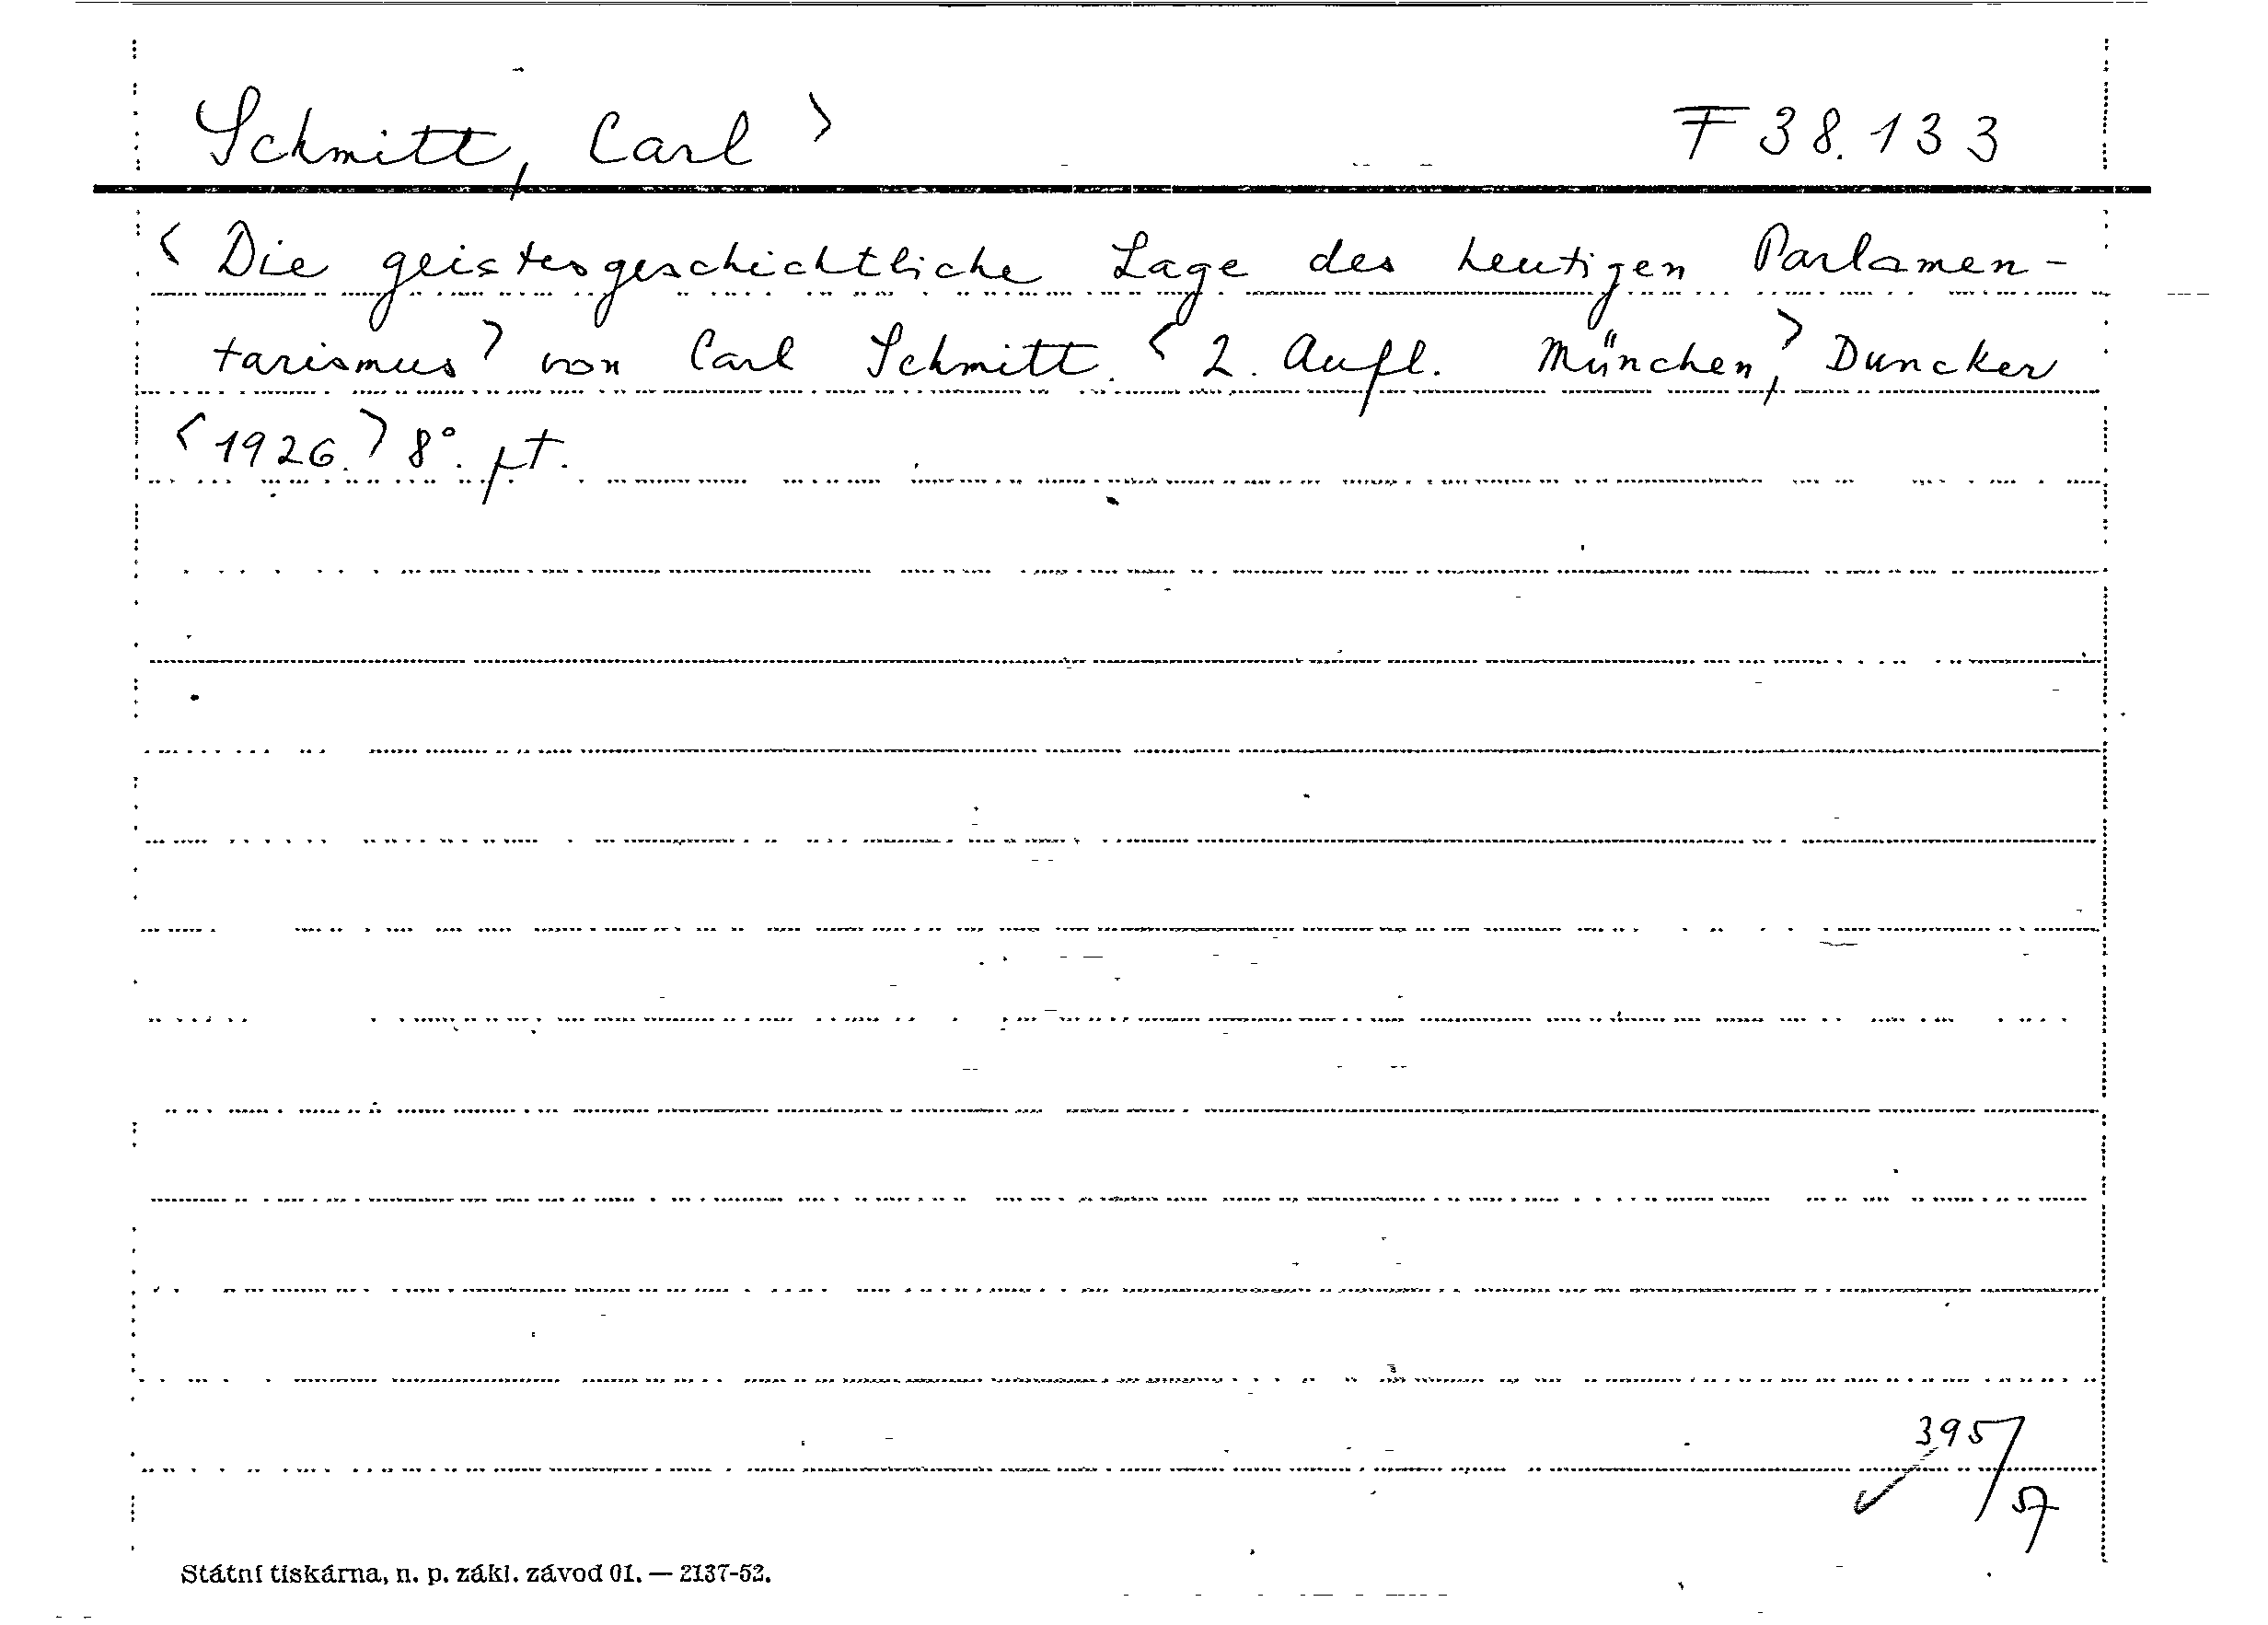 Schmitt, Carl > F 38.133
< Die geistesgeschichtliche Lage des heutigen Parlamen-
tarismus > von Carl Schmitt. < 2. Aufl. München, > Duncker
< 1926. > 8°. pt.
395/57
Státní tiskárna, n. p. zákl. závod 01. — 2137-52.